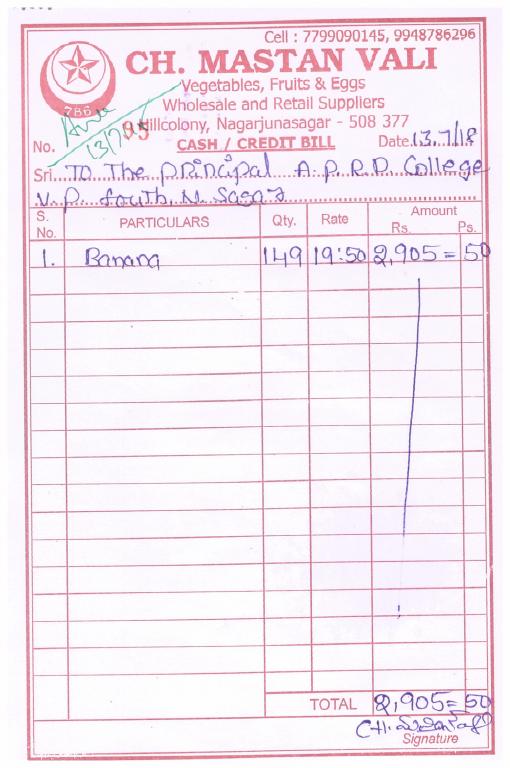 Cell : 7799090145, 9948786296
CH. MASTAN VALI
786
Vegetables, Fruits & Eggs
Wholesale and Retail Suppliers
Hillcolony, Nagarjunasagar - 508 377
13/7
No. 95 CASH / CREDIT BILL Date 13.7/18
Sri. To The principal A.P.R.D. College
V.P. South, N. Sagar
S. No. PARTICULARS Qty. Rate Amount Rs. Ps.
1. Banana 149 19:50 2,905=50
TOTAL 2,905=50
Signature